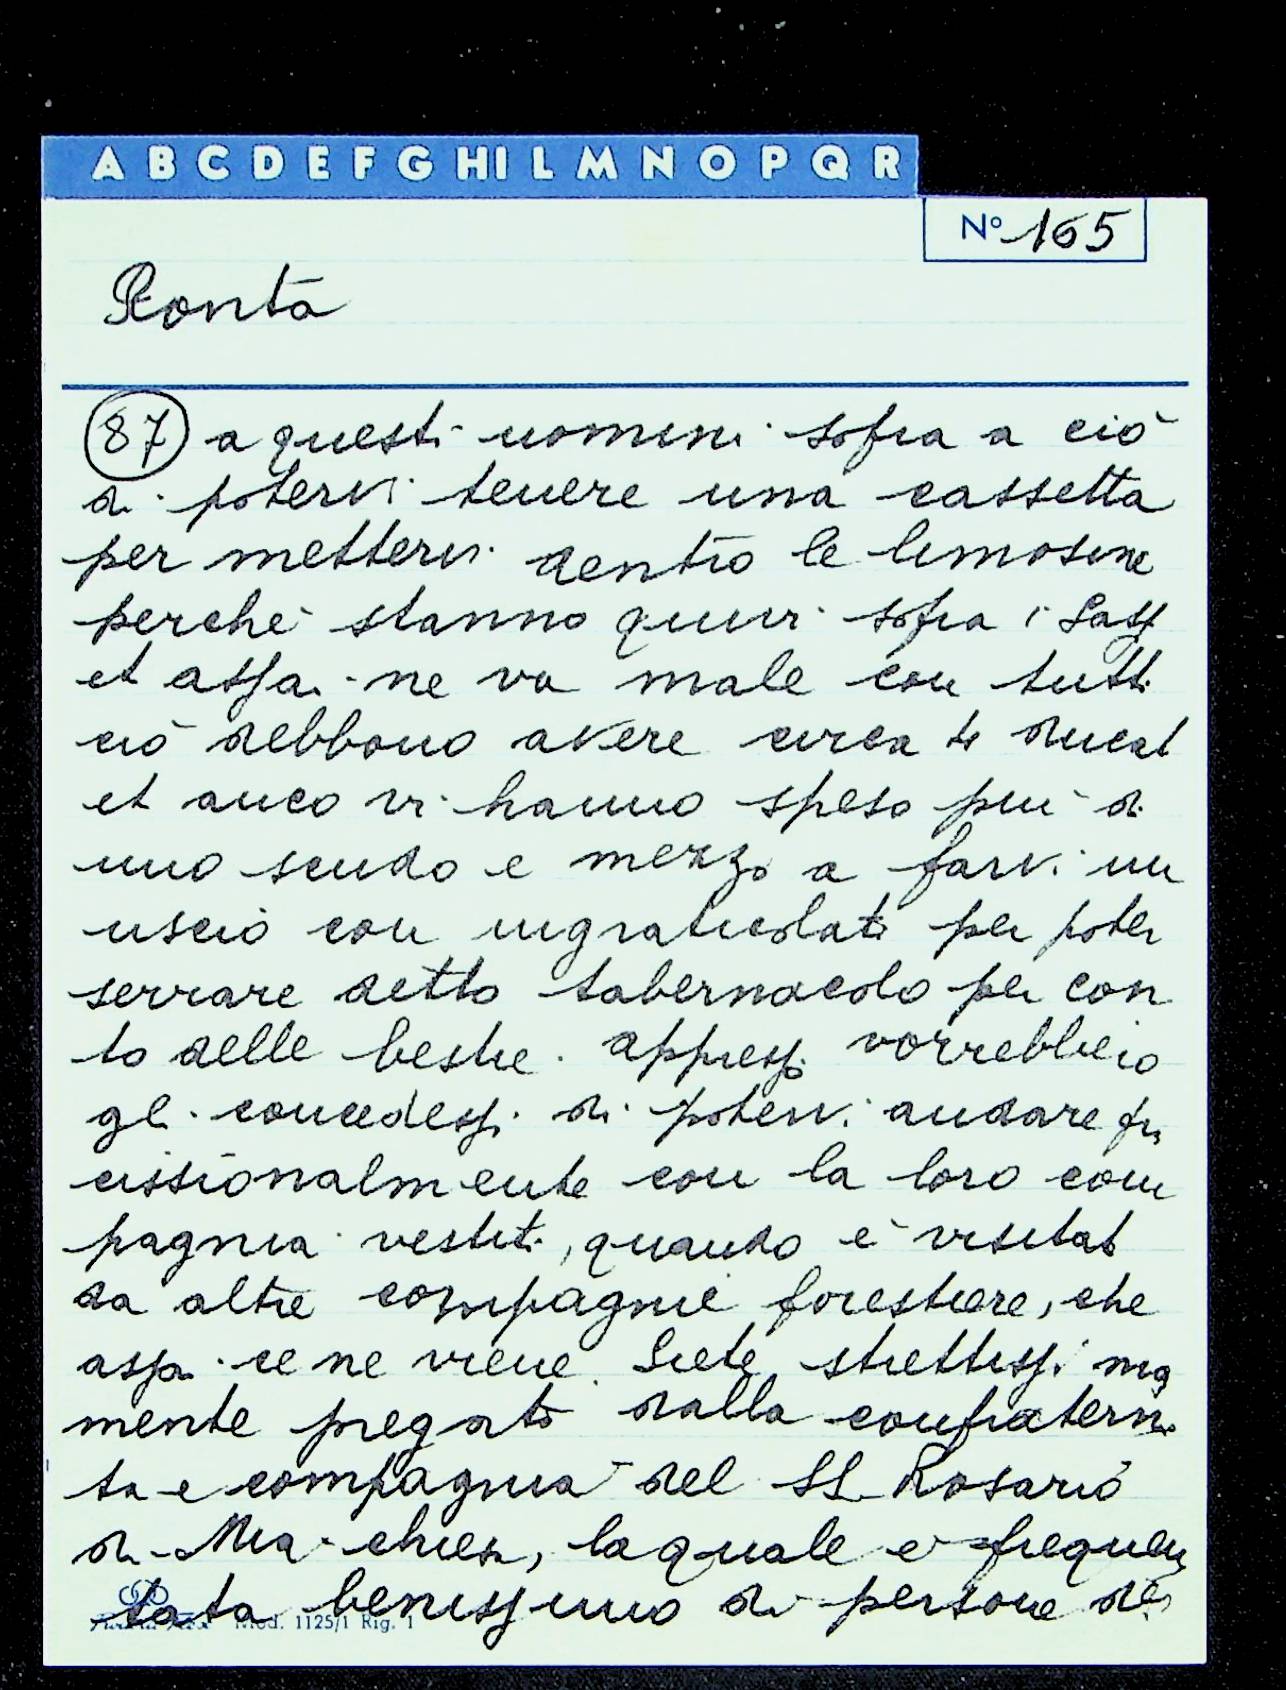 A B C D E F G HI L M N O P Q R
Nº 165
Ronta
87 a questi uomini sopra a ciò
di potervi tenere una cassetta
per mettervi dentro le limosine
perchè stanno quivi sopra i Sass
et assai ne va male con tutti
ciò debbono avere circa ducat
et anco vi hanno speso più di
uno scudo e mezzo a farvi un
uscio con ingraticolati per poter
serrare detto tabernacolo per con
to delle bestie. appresso vorrebbero
gli concedessi di potervi andare
cissionalmente con la loro com
pagnia vestiti, quando è visitat
da altre compagnie forestiere, che
assai ce ne viene. Siete strettissi ma
mente pregato dalla confraterni
ta e compagnia del SS. Rosario
di Mia chiesa, la quale è frequen
tata benissimo di persone de
Mod. 1125/1 Rig. 1